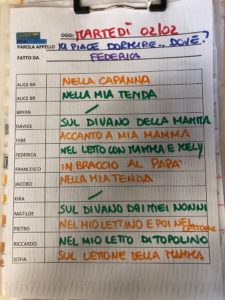 OGGI: MARTEDÌ 02/02
PAROLA APPELLO MI PIACE DORMIRE... DOVE?
FATTO DA FEDERICA
ALICE BA NELLA CAPANNA
ALICE BR NELLA MIA TENDA
BRYAN /
DAVIDE SUL DIVANO DELLA MAMMA
FEBE ACCANTO A MIA MAMMA
FEDERICA NEL LETTO CON MAMMA E KELY
FRANCESCO IN BRACCIO AL PAPÀ
JACOBO NELLA MIA TENDA
KIRA /
MATILDE SUL DIVANO DAI MIEI NONNI
PIETRO NEL MIO LETTINO E POI NEL LETTONE
RICCARDO NEL MIO LETTO DI TOPOLINO
SOFIA SUL LETTONE DELLA MAMMA